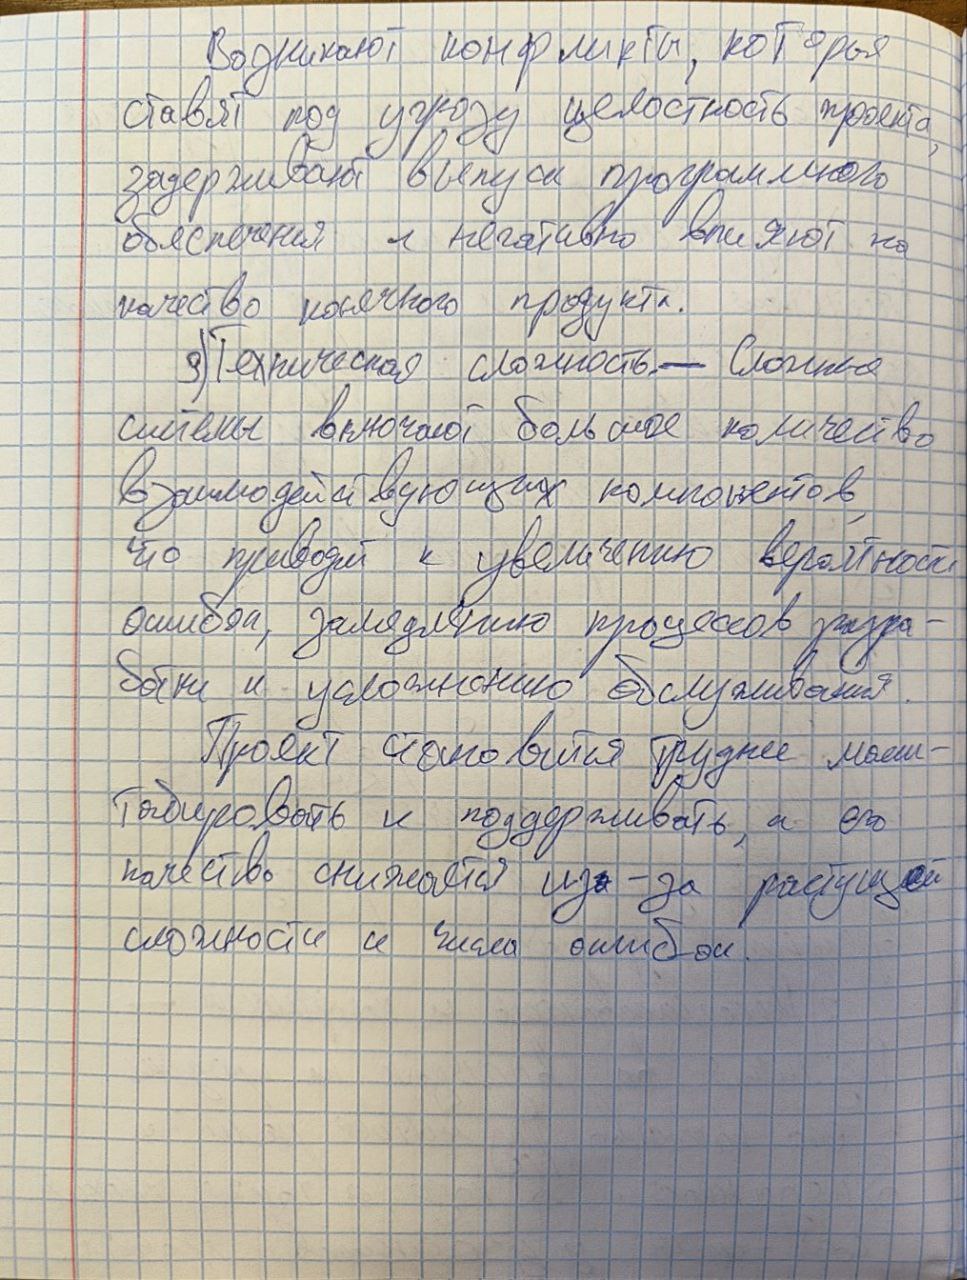 Возникают конфликты, которые
ставят под угрозу целостность проекта,
задерживают выпуск программного
обеспечения и негативно влияют на
качество конечного продукта.
9) Техническая сложность — Сложные
системы включают большое количество
взаимодействующих компонентов,
что приводит к увеличению вероятности
ошибок, замедлению процессов разра-
ботки и усложнению обслуживания.
Проект становится труднее масш-
табировать и поддерживать, а его
качество снижается из-за растущей
сложности и числа ошибок.